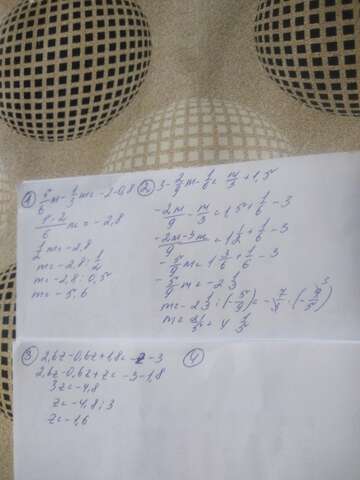 1) 5/6 m - 1/3 m = -2 - 0,8
5-2/6 m = -2,8
1/2 m = -2,8
m = -2,8 : 1/2
m = -2,8 : 0,5
m = -5,6
2) 3 - 2/9 m - 1/6 = m/3 + 1,5
-2m/9 - m/3 = 1,5 + 1/6 - 3
-2m-3m/9 = 1 1/2 + 1/6 - 3
-5/9 m = 1 3/6 + 1/6 - 3
3) 2,6z - 0,6z + 1,8 = -z - 3
2,6z - 0,6z + z = -3 - 1,8
3z = -4,8
z = -4,8 : 3
z = -1,6
4)